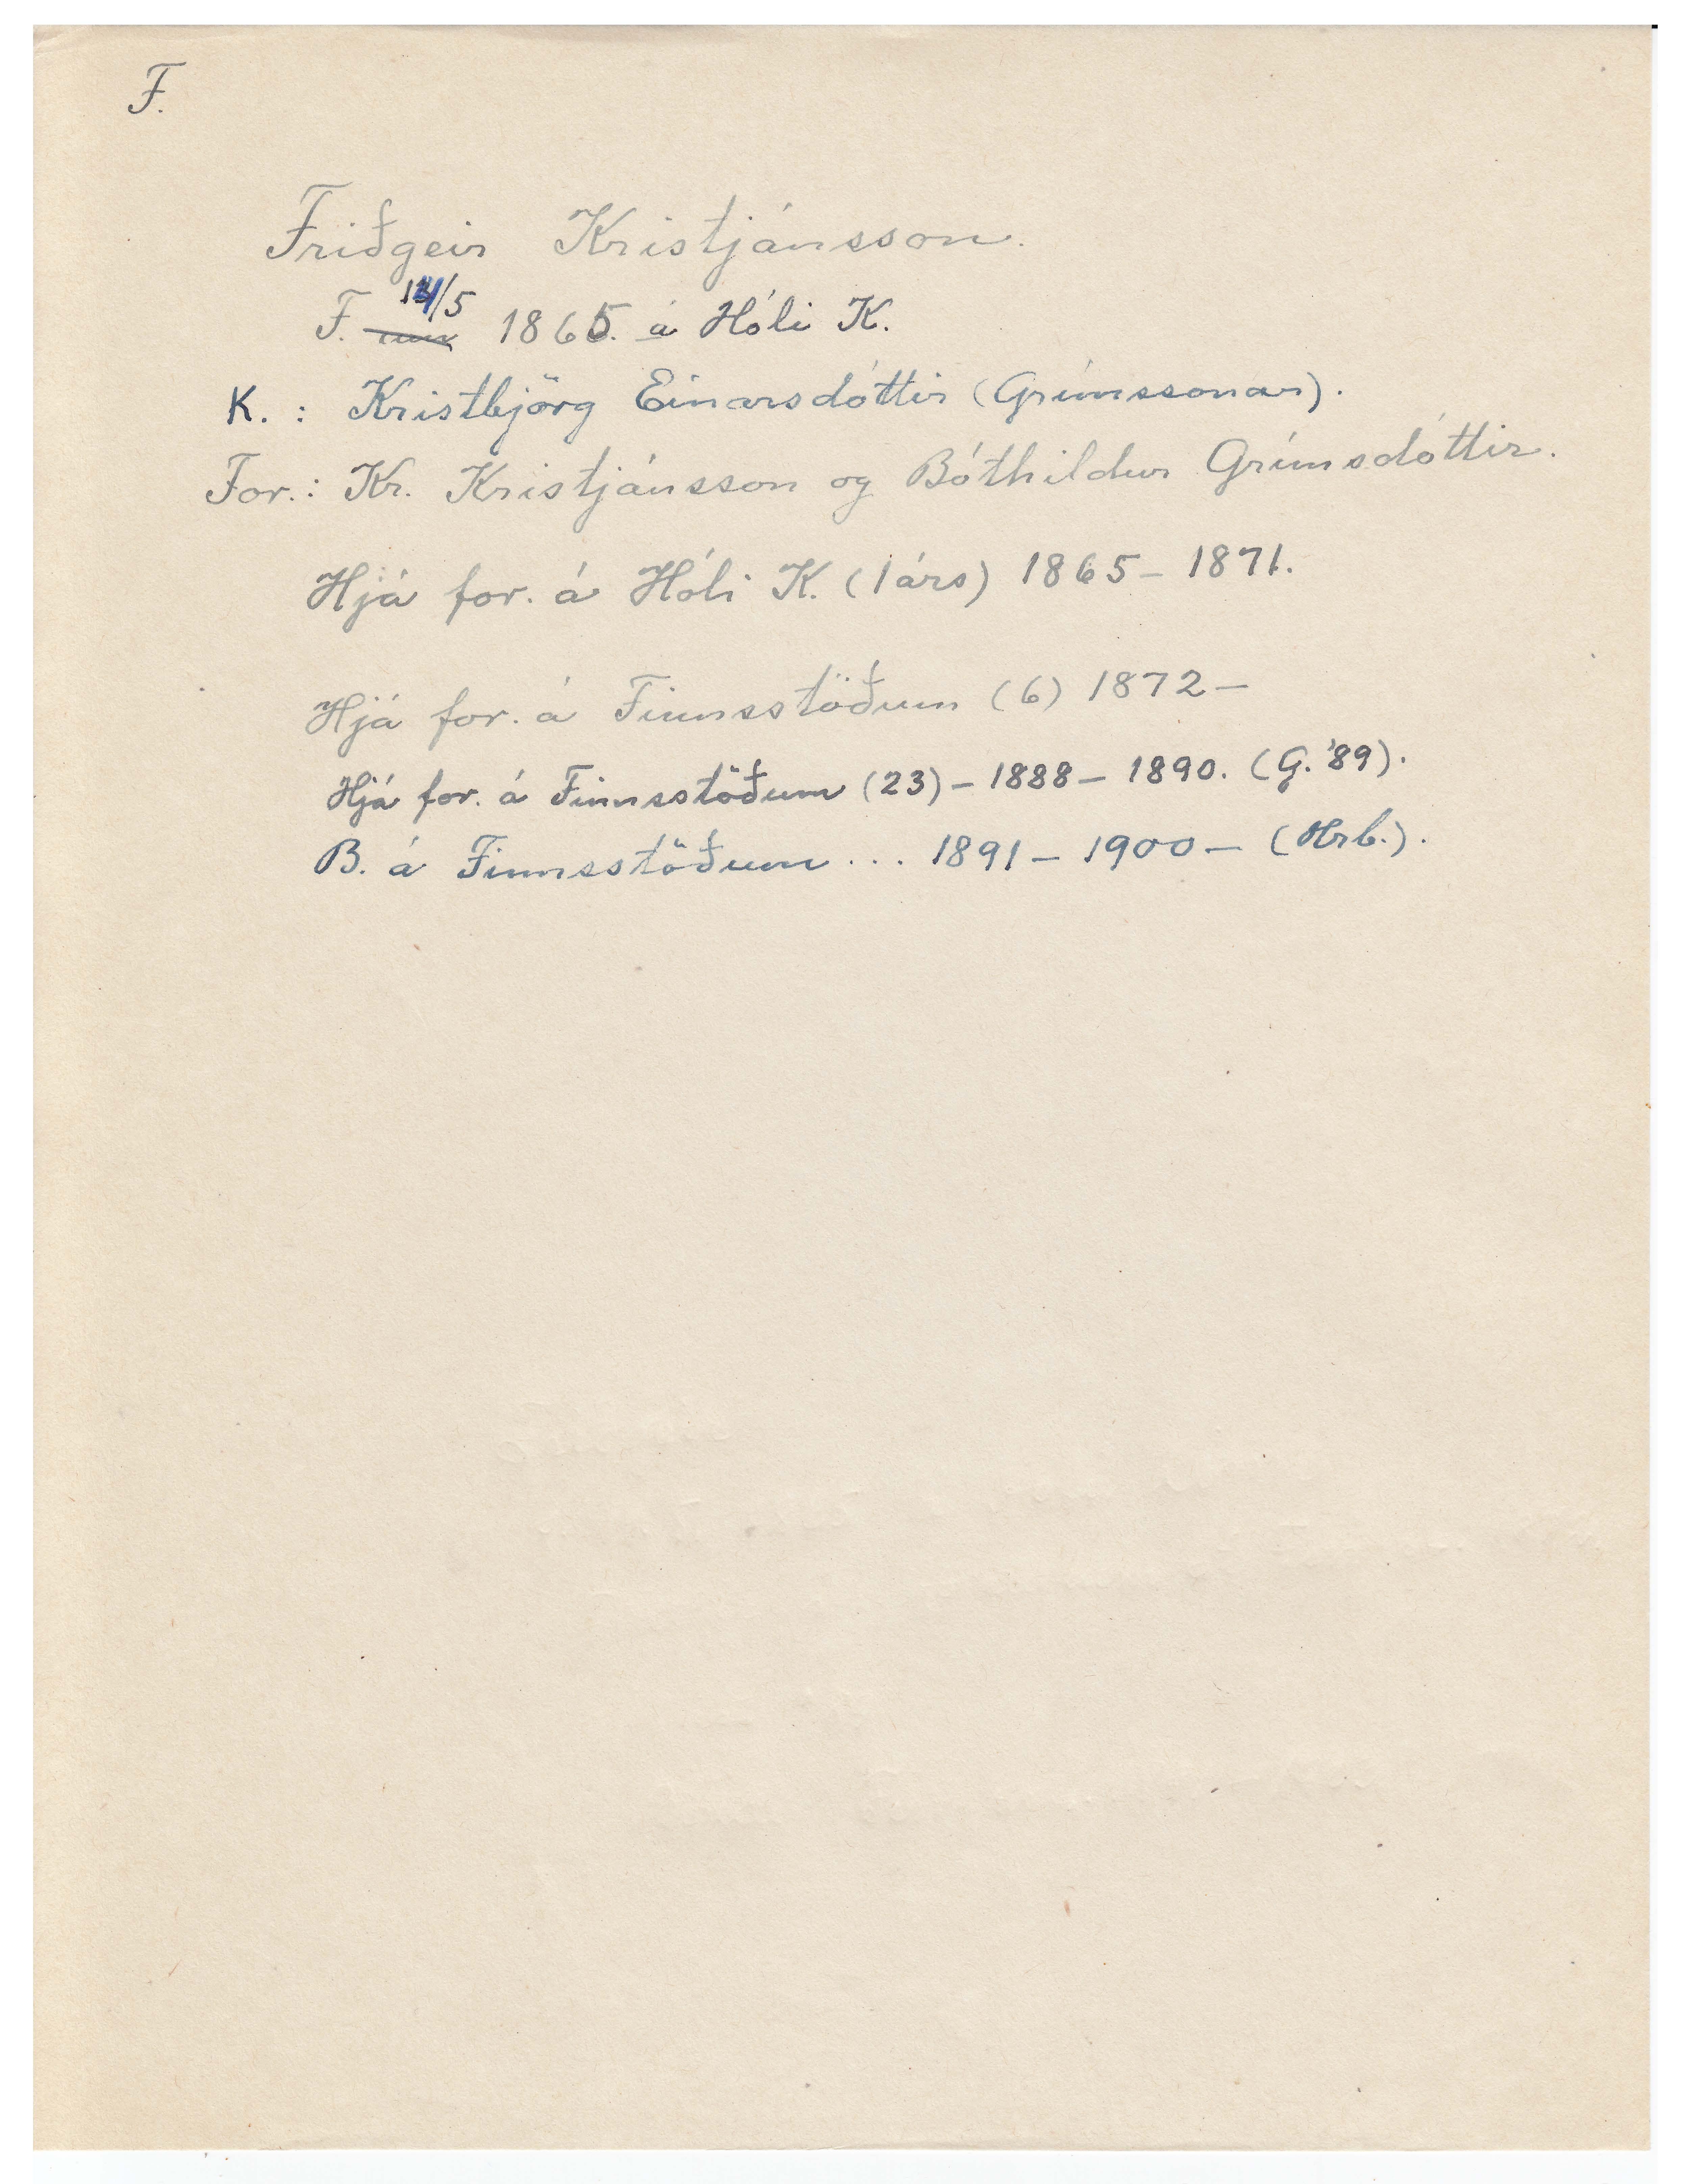 F.
Friðgeir Kristjánsson.
F. 14/5 1865. á Hóli K.
K. : Kristbjörg Einarsdóttir (Grímssonar).
For.: Kr. Kristjánsson og Bóthildur Grímsdóttir.
Hjá for. á Hóli K. (1 árs) 1865 – 1871.
Hjá for. á Finnsstöðum (6) 1872 –
Hjá for. á Finnsstöðum (23) – 1888 – 1890. (G. '89).
B. á Finnsstöðum ... 1891 – 1900 – (Hrb.).